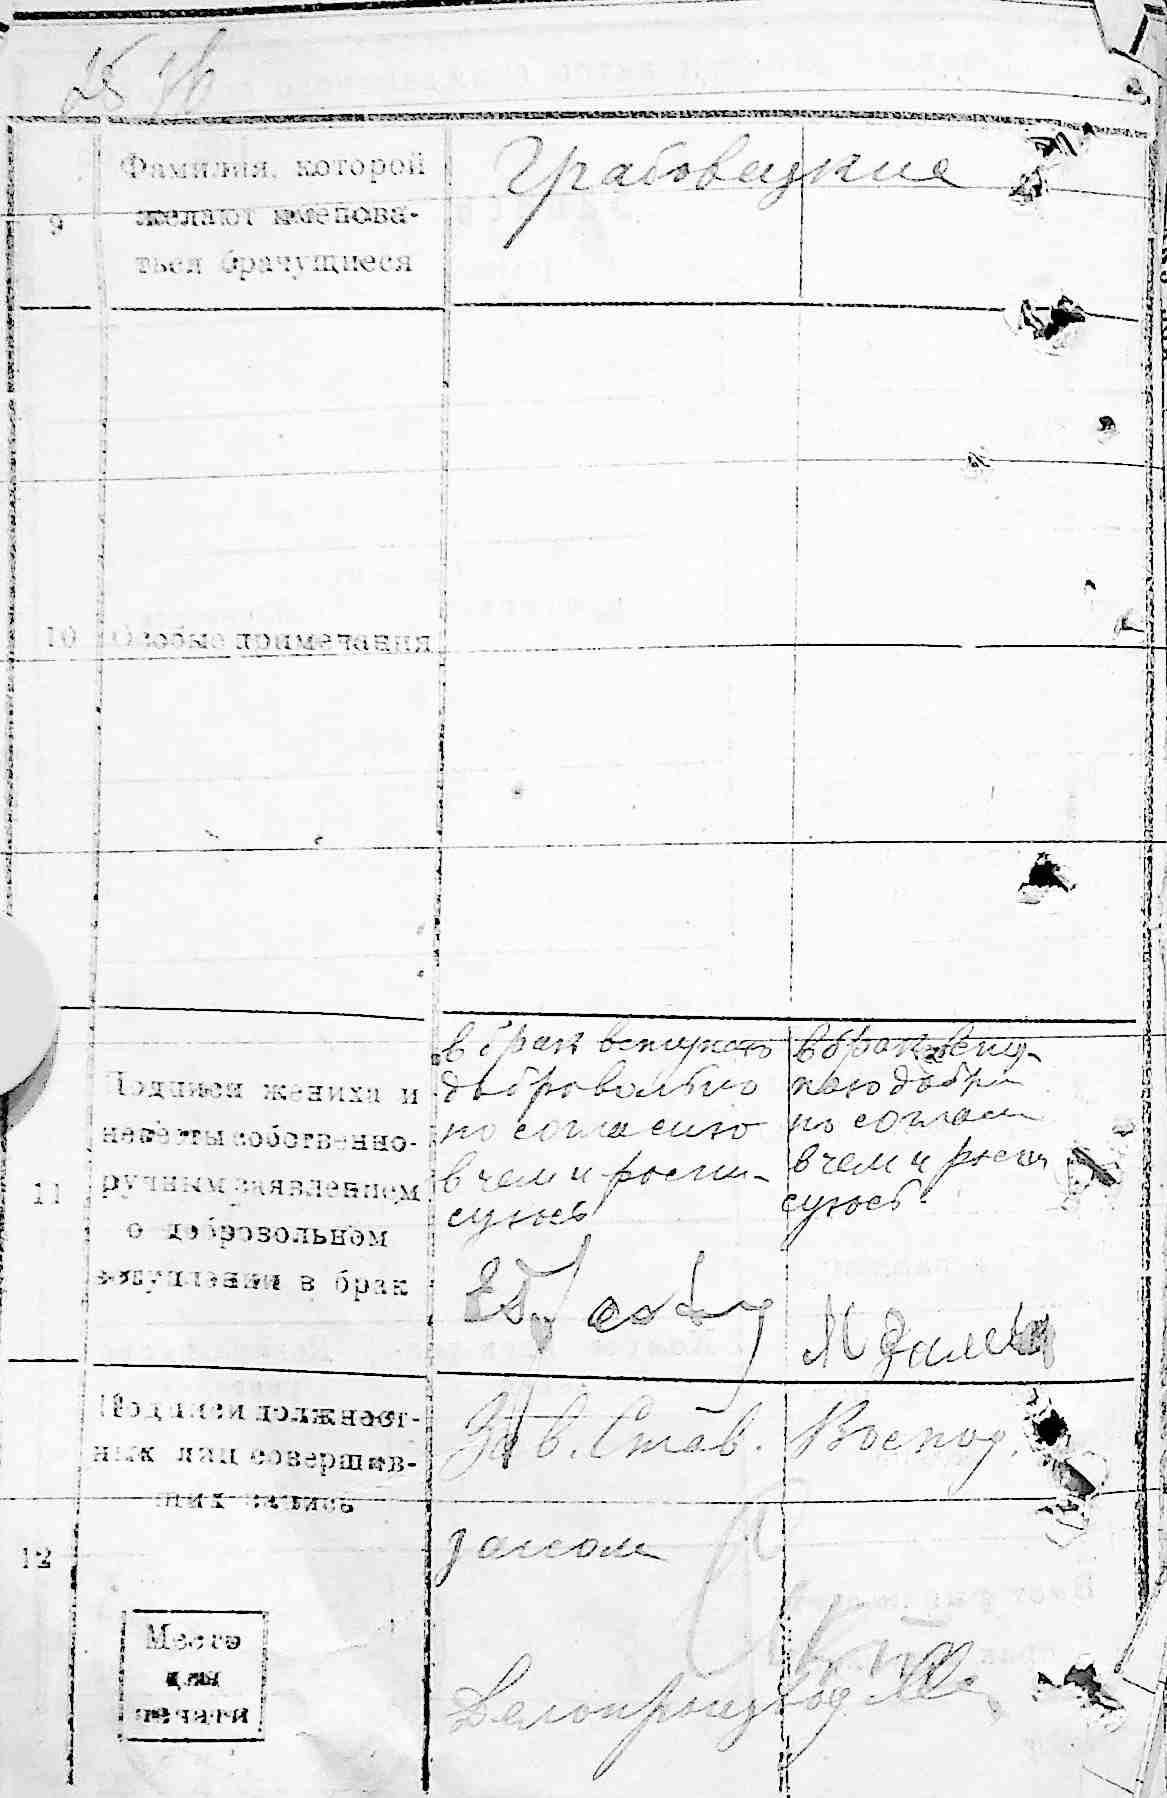 9
Фамилия, которой
желают именова-
ться брачущиеся
Грабовецкие
10
Особые примечания
11
Подписи жениха и
невесты собственно-
ручным заявлением
о добровольном
вступлении в брак
в брак вступаю
добровольно
по согласию
в чем и роспи-
суюсь
в брак всту-
паю добри
по соглаш
в чем и роспи
суюсь
12
Подписи должност-
ных лиц совершив-
ших запись
Зав. Став.
загсом
Делопроизвод
Место
для
печати